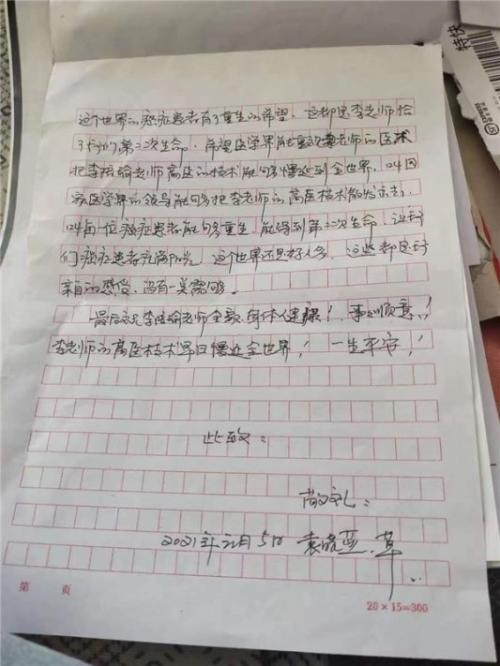 这个世界的癌症患者有了重生的希望。这都是李老师给
了我们第二次生命。希望医学界能重视李老师的医术
把李老师高医的技术能够传递到全世界。
医学界的领导能够把李老师的高医技术散发出去。
每一位癌症患者能够重生，能得到第二次生命。让我
们癌症患者充满阳光。这个世界还是好人多。这些都是我
亲自的感受，没有一点虚假。
最后祝李老师全家身体健康！事事顺意！
李老师的高医技术早日传递全世界！一生平安！
此致：
敬礼：
2021年元月5日 袁晓亚.草
第 页
20×15=300
特快